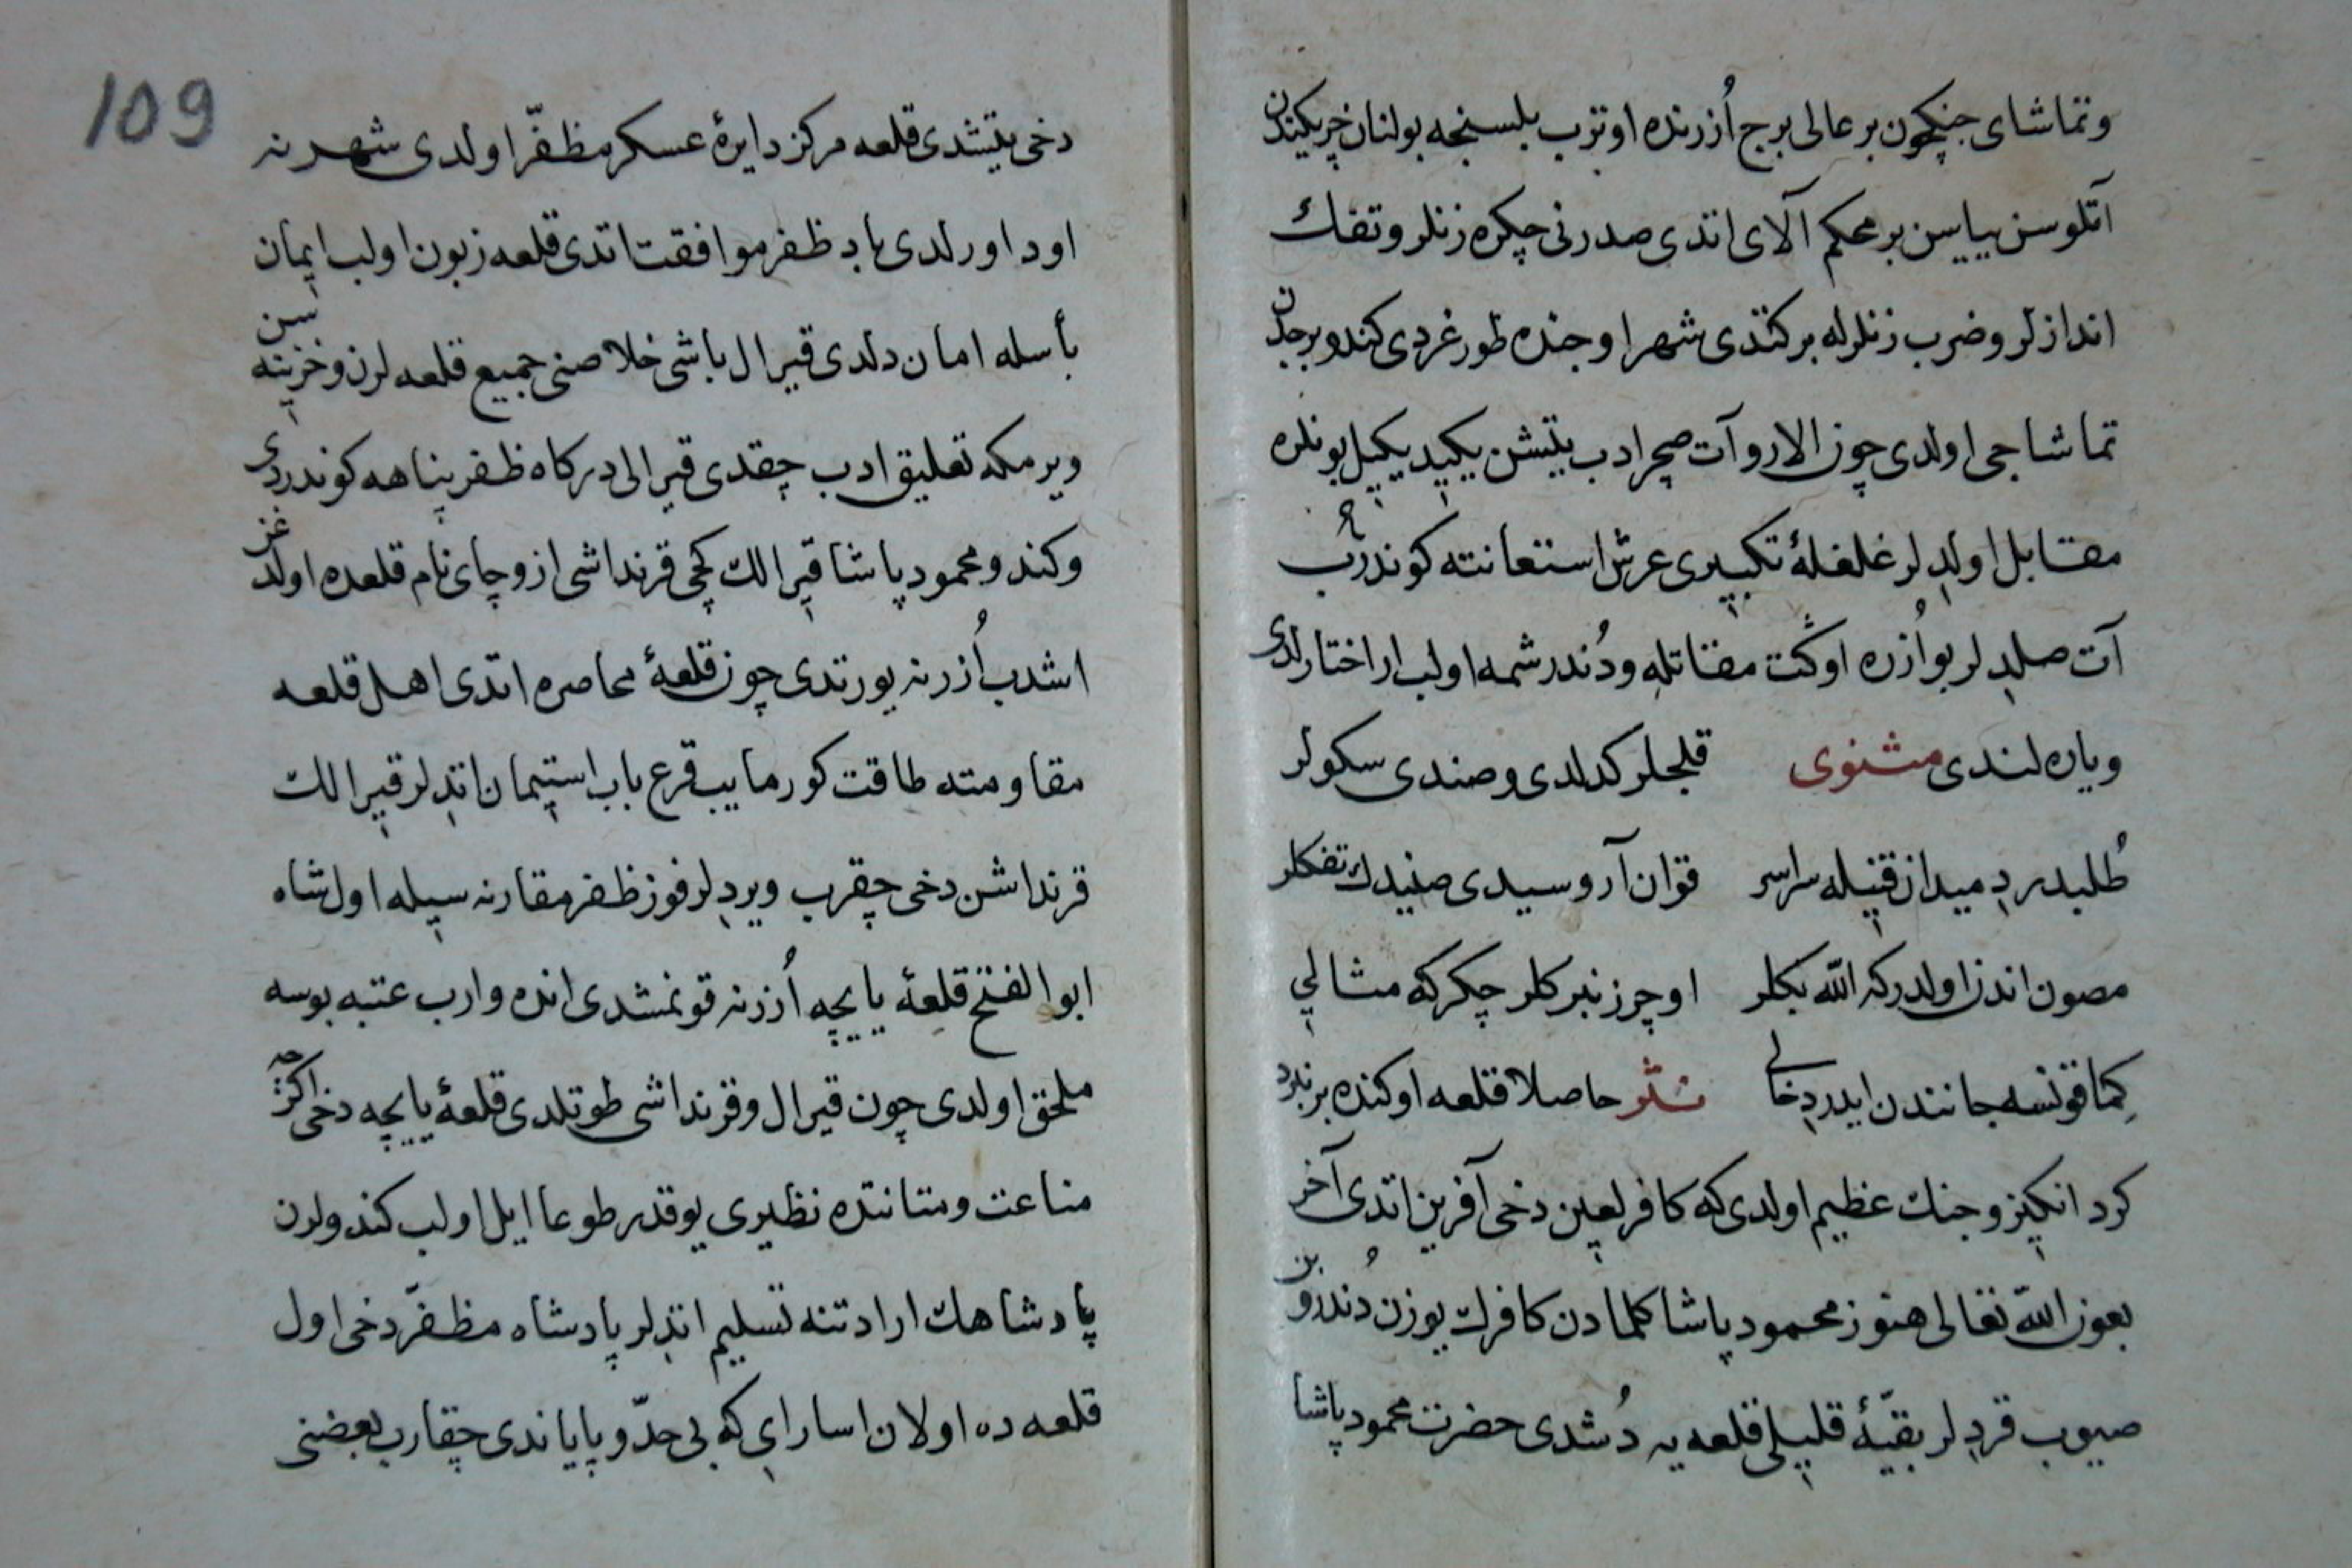 وتماشای جنکچون بر عالی برج اُزرنده اوترب بلسنجه بولنان خریکیندن
آتلوسن یایسن بر محکم آلای اتدی صدرنی چکره زنلر وتفك
اندازلر وضرب زنلرله برکتدی شهر اوجنده طورغردی کندو برجدن
تماشاجی اولدی چون الارو آت صچرادب یتیشن یکید یکیل بونلره
مقابل اولدلر غلغلهٔ تکبیری عرش استعانته کوندرب
آت صلدلر بو اُزره اوکت مقاتله ودُندرشمه اولب ار اختارلدی
ویاره لندی مثنوی قلجلر کدلدی وصندی سکولر
طُلیدردِ میدان قنیله سراسر قوان آروسیدی صنیدك تفکلر
مصون اندن اولدرکه الله بکلر اوچرزنبرکلر چکرکه مثالی
کِما قونسه جانندن ایدردِ خالی نثر حاصلا قلعه اوکنده برنبرد
کرد انکیز وجنك عظیم اولدی که کافر لعین دخی آفرین اتدی آخر
بعون الله تعالی هنوز محمود پاشا کلمادن کافرك یوزن دُندرو بن
صیوب قردلر بقیّهٔ قلیلی قلعه یه دُشدی حضرت محمود پاشا
109
دخی یتیشدی قلعه مرکز دایرهٔ عسکر مظفّر اولدی شهرنه
اود اورلدی باد ظفر موافقت اتدی قلعه زبون اولب ایمان
بأسله امان دلدی قیرال باشی خلاصنی جمیع قلعه لرن وخزینه سن
ویرمکه تعلیق ادب چقدی قیرالی درکاه ظفر پناهه کوندردی
وکندو محمود پاشا قیرالك کچی قرنداشی ازوچای نام قلعده اولدغن
اشدب اُزرنه یورتدی چون قلعهٔ محاصره اتدی اهل قلعه
مقاومته طاقت کورمایب قرع باب استیمان اتدلر قیرالك
قرنداشن دخی چقرب ویردلر فوز ظفر مقارنه سیله اول شاه
ابو الفتح قلعهٔ یایچه اُزرنه قونمشدی انده وارب عتبه بوسه
ملحق اولدی چون قیرال وقرنداشی طوتلدی قلعهٔ یایچه دخی اکرچه
مناعت ومتانتده نظیری یوقدر طوعا ایل اولب کندولرن
پادشاهك ارادتنه تسلیم اتدلر پادشاه مظفّر دخی اول
قلعه ده اولان اسارای که بی حدّ وپایاندی چقارب بعضنی